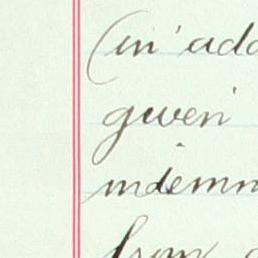 (in add
given
indemn
from